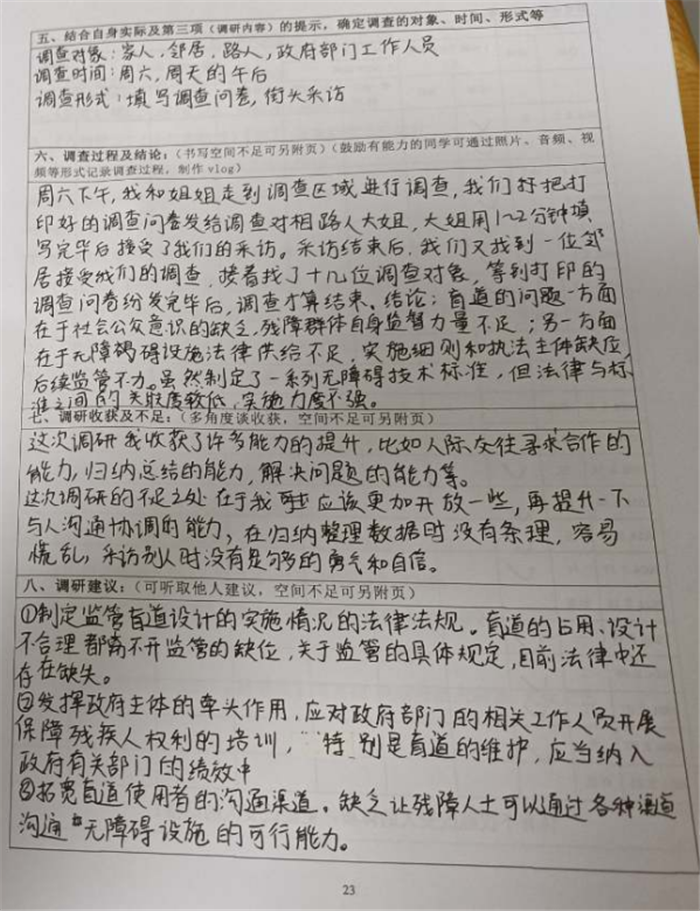 五、结合自身实际及第三项（调研内容）的提示，确定调查的对象、时间、形式等
调查对象：家人，邻居，路人，政府部门工作人员
调查时间：周六，周天的午后
调查形式：填写调查问卷，街头采访
六、调查过程及结论：（书写空间不足可另附页）（鼓励有能力的同学可通过照片、音频、视
频等形式记录调查过程，制作 vlog）
周六下午，我和姐姐走到调查区域进行调查，我们将把打
印好的调查问卷发给调查对相路人大姐，大姐用1~2分钟填
写完毕后接受了我们的采访。采访结束后，我们又找到一位邻
居接受我们的调查，接着找了十几位调查对象，等到打印的
调查问卷纷发完毕后，调查才算结束。结论：盲道的问题一方面
在于社会公众意识的缺乏，残障群体自身监督力量不足；另一方面
在于无障碍碍设施法律供给不足，实施细则和执法主体缺位，
后续监管不力。虽然制定了一系列无障碍技术标准，但法律与标
准之间的关联度较低，实施力度不强。
七、调研收获及不足：（多角度谈收获，空间不足可另附页）
这次调研我收获了许多能力的提升，比如人际交往寻求合作的
能力，归纳总结的能力，解决问题的能力等。
这次调研的不足之处在于我应该更加开放一些，再提升一下
与人沟通协调的能力，在归纳整理数据时没有条理，容易
慌乱，采访别人时没有足够多的勇气和自信。
八、调研建议：（可听取他人建议，空间不足可另附页）
①制定监管盲道设计的实施情况的法律法规。盲道的占用、设计
不合理都离不开监管的缺位，关于监管的具体规定，目前法律中还
存在缺失。
②发挥政府主体的牵头作用，应对政府部门的相关工作人员开展
保障残疾人权利的培训，特别是盲道的维护，应当纳入
政府有关部门的绩效中
③拓宽盲道使用者的沟通渠道。缺乏让残障人士可以通过各种渠道
沟通无障碍设施的可行能力。
23